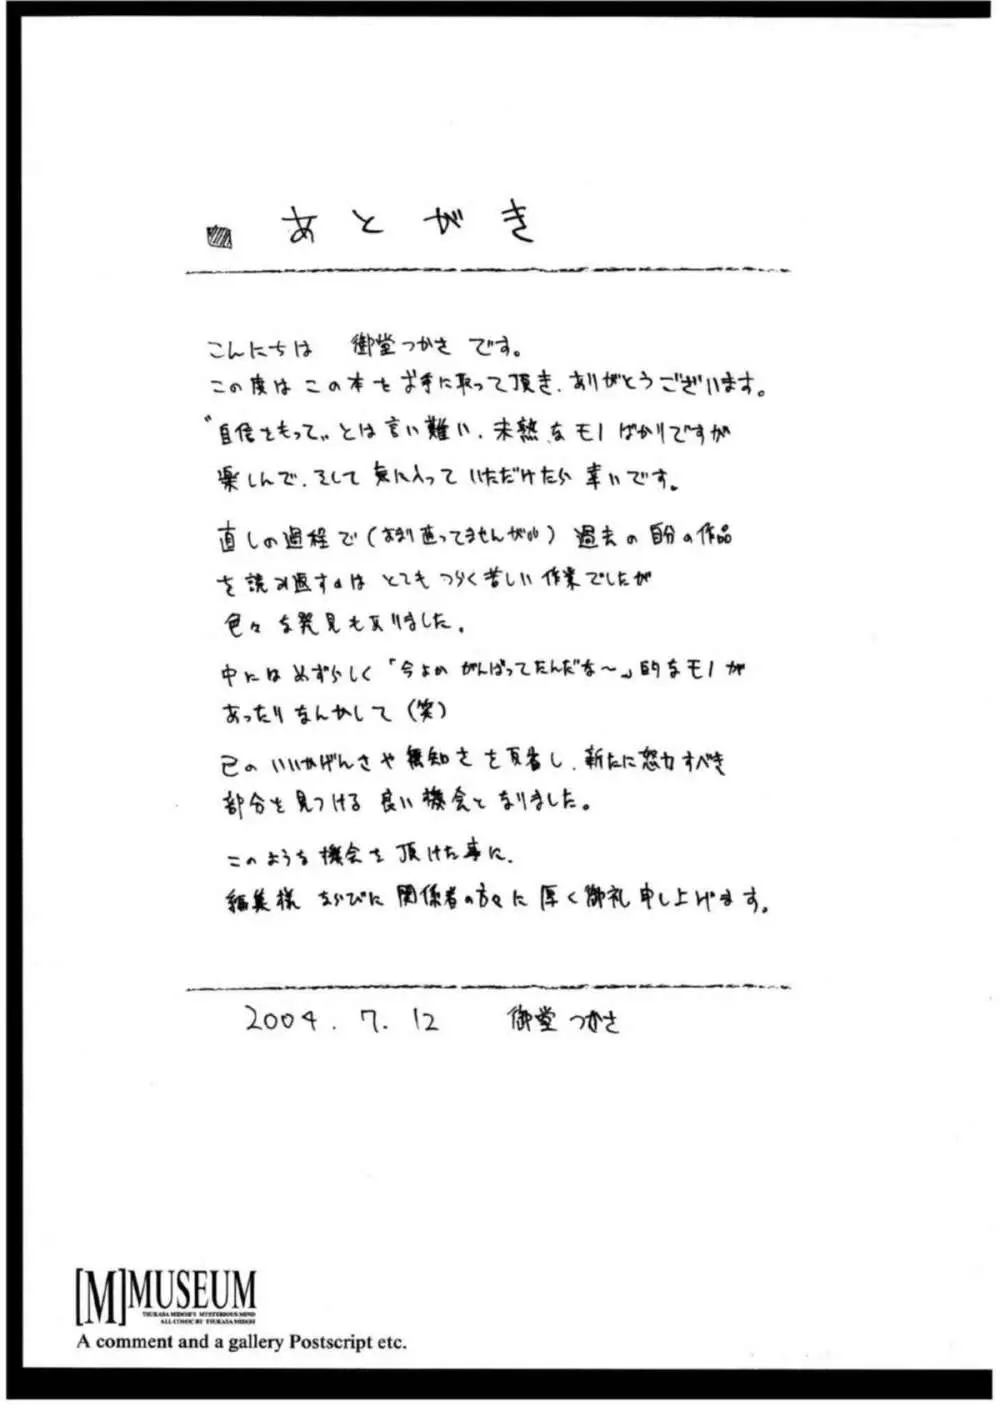 あとがき
こんにちは 御堂つかさ です。
この度は この本を お手に取って頂き、ありがとうございます。
"自信をもって"とは言い難い、未熟なモノばかりですが
楽しんで、そして 気に入って いただけたら 幸いです。
直しの過程で(あまり直ってませんがｗ) 過去の自分の作品
を読み返すのは とても つらく苦しい 作業でしたが
色々な発見もありました。
中にはめずらしく「今よか がんばってたんだな〜」的なモノが
あったりなんかして(笑)
己の いいかげんさや 無知さ を 反省し、新たに努力すべき
部分を見つける 良い機会と なりました。
このような機会を 頂けた事に、
編集様 ならびに 関係者の方々に 厚く御礼申し上げます。
2004.7.12 御堂つかさ
[M]MUSEUM
TSUKASA MIDOH'S MYSTERIOUS MIND
ALL COMIC BY TSUKASA MIDOH
A comment and a gallery Postscript etc.